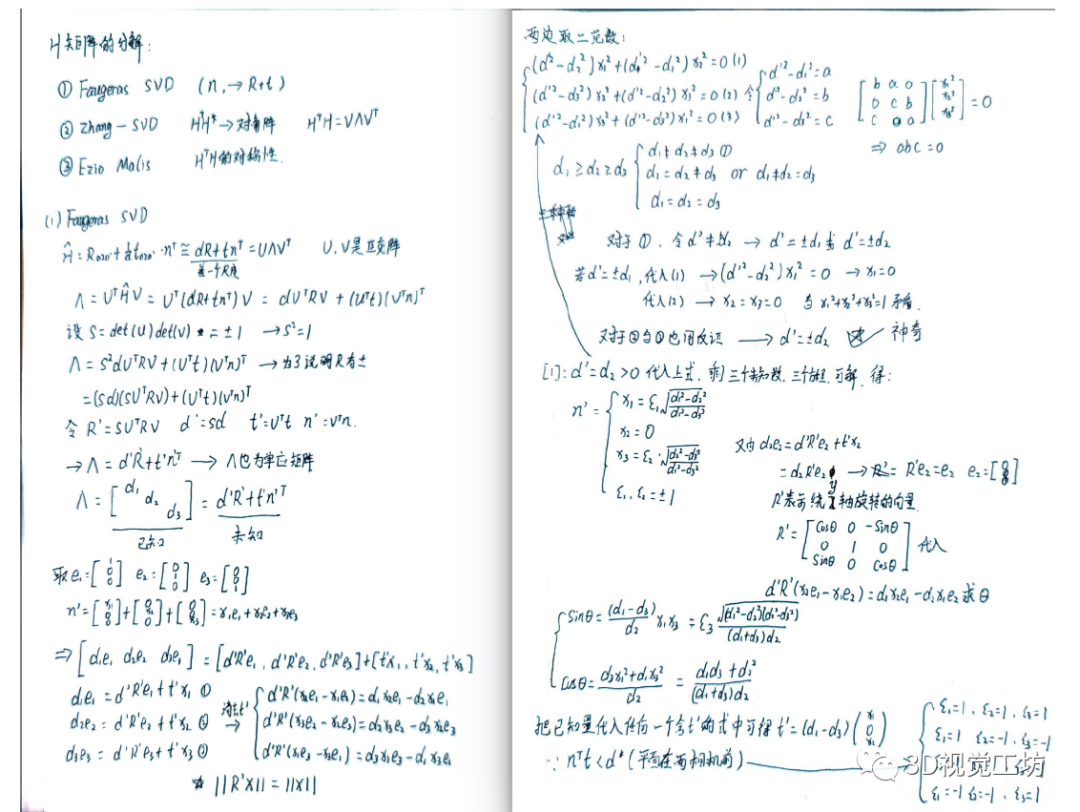 H矩阵的分解:
① Faugeras SVD (n, → R+t)
② Zhang-SVD HᵀH → 对角阵 HᵀH = VΛVᵀ
③ Ezio Malis HᵀH的对称性.
(1) Faugeras SVD
乘一个尺度
U, V是正交阵
Λ = UᵀĤV = Uᵀ(dR+tnᵀ)V = dUᵀRV + (Uᵀt)(Vᵀn)ᵀ
设 S = det(U)det(V) = ±1 → S²=1
Λ = S²dUᵀRV + (Uᵀt)(Vᵀn)ᵀ → 为了说明R有±
= (Sd)(SUᵀRV) + (Uᵀt)(Vᵀn)ᵀ
令 R' = SUᵀRV d' = Sd t' = Uᵀt n' = Vᵀn.
→ Λ = d'R' + t'n'ᵀ → Λ也为单应矩阵
Λ = [d₁ d₂ d₃] = d'R' + t'n'ᵀ
已知 未知
取 e₁ = [1 0 0] e₂ = [0 1 0] e₃ = [0 0 1]
n' = [x₁ 0 0] + [0 x₂ 0] + [0 0 x₃] = x₁e₁ + x₂e₂ + x₃e₃
⇒ [d₁e₁ d₂e₂ d₃e₃] = [d'R'e₁, d'R'e₂, d'R'e₃] + [t'x₁, t'x₂, t'x₃]
d₁e₁ = d'R'e₁ + t'x₁ ①
d₂e₂ = d'R'e₂ + t'x₂ ②
d₃e₃ = d'R'e₃ + t'x₃ ③
消去t' →
d'R'(x₂e₁ - x₁e₂) = d₁x₂e₁ - d₂x₁e₂
d'R'(x₃e₂ - x₂e₃) = d₂x₃e₂ - d₃x₂e₃
d'R'(x₁e₃ - x₃e₁) = d₃x₁e₃ - d₁x₃e₁
* ||R'X|| = ||X||
两边取二范数:
(d'²-d₂²)x₁² + (d'²-d₁²)x₂² = 0 (1)
(d'²-d₃²)x₂² + (d'²-d₂²)x₃² = 0 (2) 令
(d'²-d₁²)x₃² + (d'²-d₃²)x₁² = 0 (3)
d'²-d₁² = a
d'²-d₂² = b
d'²-d₃² = c
[b a 0
0 c b
c 0 a] [x₁² x₂² x₃²] = 0
⇒ abc = 0
d₁ ≥ d₂ ≥ d₃
d₁ ≠ d₂ ≠ d₃ ①
d₁ = d₂ ≠ d₃ or d₁ ≠ d₂ = d₃
d₁ = d₂ = d₃
对于①, 令 d' ≠ ±d₂ → d' = ±d₁
若 d' = ±d₁, 代入(1) → (d'²-d₂²)x₁² = 0 → x₁ = 0
代入(2) → x₂ = x₃ = 0 与 x₁²+x₂²+x₃²=1 矛盾.
→ d' = ±d₂ 神奇
[1]: d' = d₂ > 0 代入上式, 剩三个未知数, 三个方程, 可解, 得:
n' =
x₁ = ε₁√((d₁²-d₂²)/(d₁²-d₃²))
x₂ = 0
x₃ = ε₂·√((d₂²-d₃²)/(d₁²-d₃²))
ε₁, ε₂ = ±1
又由 d₂e₂ = d'R'e₂ + t'x₂
= d₂R'e₂ → R'e₂ = e₂ e₂ = [0 1 0]
R'表示绕y轴旋转的向量.
R' = [Cosθ 0 -Sinθ
0 1 0
Sinθ 0 Cosθ] 代入
d'R'(x₃e₁ - x₁e₃) = d₁x₃e₁ - d₃x₁e₃ 求θ
Sinθ = (d₁-d₃)/d₂ x₁x₃ = ε₃ √((d₁²-d₂²)(d₂²-d₃²))/((d₁+d₃)d₂)
Cosθ = (d₃x₁²+d₁x₃²)/d₂ = (d₁d₃+d₂²)/((d₁+d₃)d₂)
把已知量代入任何一个含t'的式中可得 t' = (d₁-d₃)
∵ nᵀt < d* (平面在两相机前)
ε₁=1, ε₂=1, ε₃=1
ε₁=1 ε₂=-1, ε₃=-1
ε₁=-1 ε₂=-1, ε₃=1
3D视觉工坊